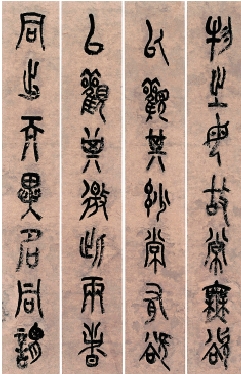 物之母故常無欲
以觀其妙常有欲
以觀其徼此兩者
同出而異名同謂